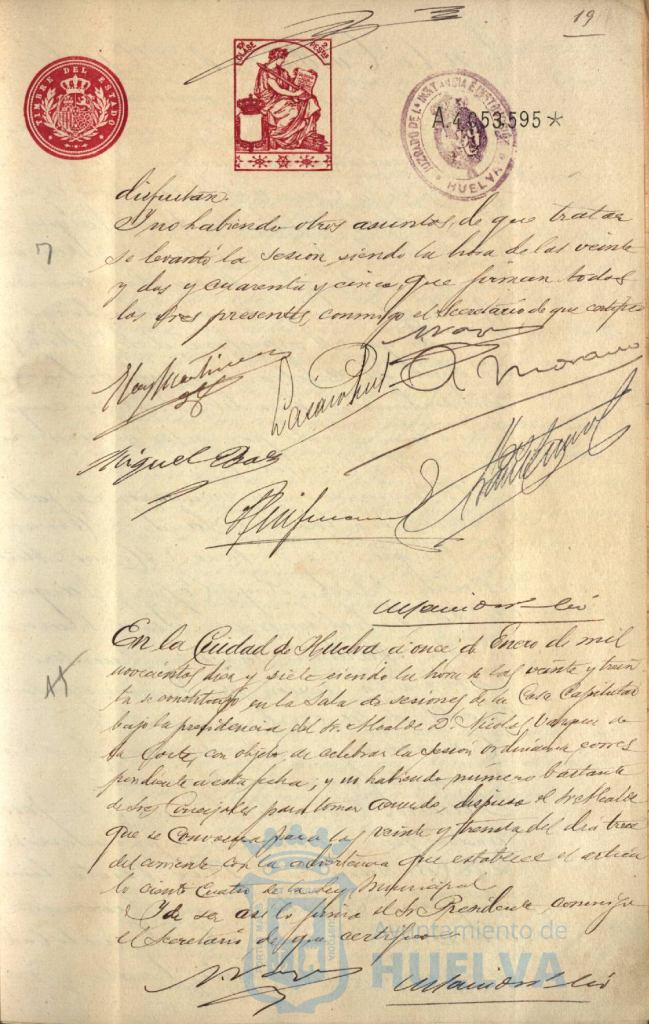 19
TIMBRE DEL ESTADO
CLASE
2 PESETAS
JUZGADO DE
HUELVA
A.4.053.595*
disfrutan.
Y no habiendo otros asuntos, de que tratar
se levantó la sesion siendo la hora de las veinte
y dos y cuarenta y cinco, que firman todos
los Sres presentes, conmigo el Secretario de que certifico
Miguel Baez
A Moreno
En la Ciudad de Huelva á once de Enero de mil
novecientos diez y siete siendo la hora de las veinte y trein
ta se constituyó en la Sala de sesiones de la Casa Capitular
bajo la presidencia del Sr. Alcalde D. Nicolas Vazquez de
la Corte, con objeto, de celebrar la sesion ordinaria corres
pondiente á esta fecha, y no habiendo número bastante
de Sres Concejales para tomar acuerdo, dispuso el Sr Alcalde
que se convocara para la veinte y treinta del dia trece
del corriente, con la advertencia que establece el artícu
lo ciento cuatro de la Ley Municipal.
Y de ser así lo firma el Sr Presidente, conmigo
el Secretario de que certifico
Ayuntamiento de
HUELVA